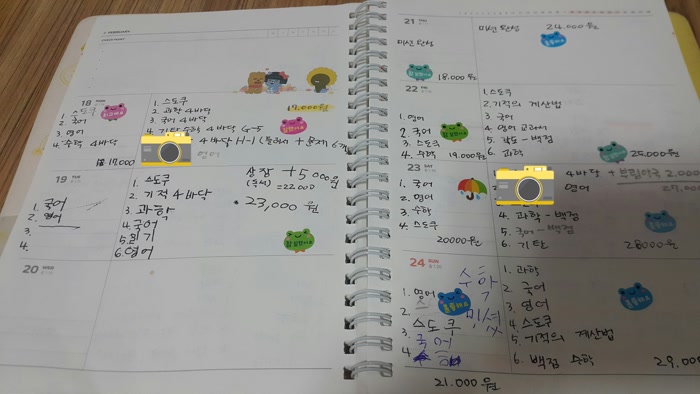 2. FEBRUARY
18
1. 스도쿠
2. 국어
3. 영어
4. 수학 4바닥
17,000
1. 스도쿠
2. 과학 4바닥
3. 국어 4바닥
4. 기탄수학 4바닥 G-5
4바닥 H-1
영어
17,000원
19
1. 국어
2. 영어
3.
4.
1. 스도쿠
2. 기적 4바닥
3. 과학
4. 국어
5. 읽기
6. 영어
상장 +5,000원
=22,000
23,000 원
20 WED
21
미션 완성
18,000원
미션 완성
24,000원
22
1. 영어
2. 국어
3. 스도쿠
4. 수학
19,000원
1. 스도쿠
2. 기적의 계산법
3. 국어
4. 영어 교과서
5. 국토-백점
6. 과학
25,000원
23
1. 국어
2. 영어
3. 수학
4. 스도쿠
20000원
4바닥 +
2,000
영어
4. 과학-백점
5. 국어-백점
6. 기탄
28000원
24 SUN
1. 영어
2.
3. 스도쿠
국어
4.
수학
21,000원
1. 과학
2. 국어
3. 영어
4. 스도쿠
5. 기적의 계산법
6. 백점 수학
29,00